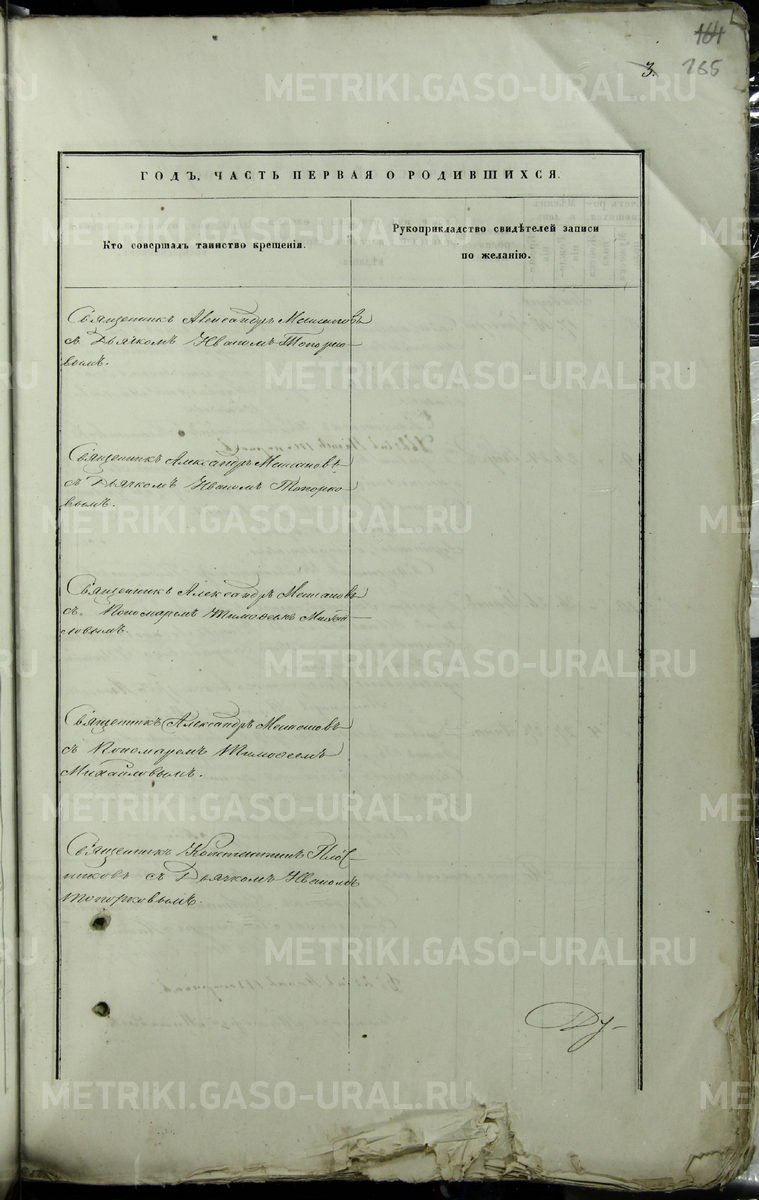 164
3.
165
ГОДЪ, ЧАСТЬ ПЕРВАЯ О РОДИВШИХСЯ.
Кто совершалъ таинство крещенія.
Рукоприкладство свидѣтелей записи
по желанію.
Священникъ Александръ
съ Дьячкомъ Иваномъ Топорко-
вымъ.
Священникъ Александръ
съ Дьячкомъ Иваномъ Топорко-
вымъ.
Священникъ Александръ
съ Пономаремъ Тимофеемъ Михай-
ловымъ.
Священникъ Александръ
съ Пономаремъ Тимофеемъ
Михайловымъ.
Священникъ Константинъ Плот-
никовъ съ Дьячкомъ Иваномъ
Топорковымъ.
Ду-
METRIKI.GASO-URAL.RU